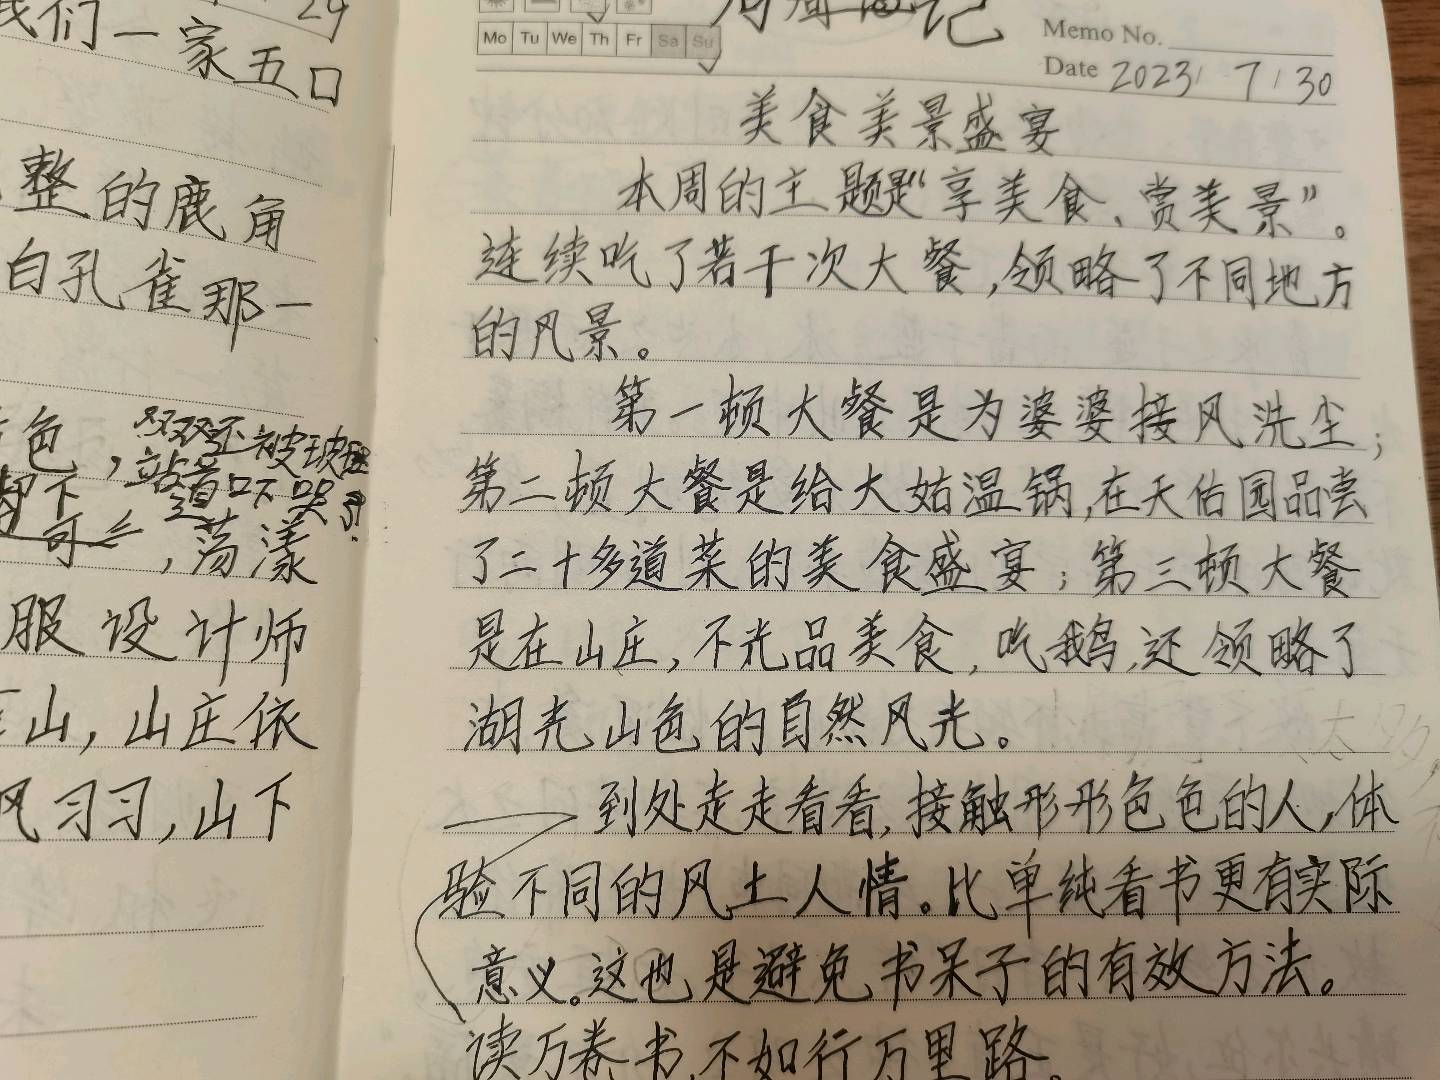 29
我们一家五口
整的鹿角
白孔雀那一
色，双双还被玻璃
站道口下哭了！
可么，荡漾
服设计师
山，山庄依
风习习，山下
记
Mo Tu We Th Fr Sa Su
Memo No.
Date 2023 / 7 / 30
美食美景盛宴
本周的主题是“享美食、赏美景”。
连续吃了若干次大餐，领略了不同地方
的风景。
第一顿大餐是为婆婆接风洗尘；
第二顿大餐是给大姑温锅，在天佑园品尝
了二十多道菜的美食盛宴；第三顿大餐
是在山庄，不光品美食，吃鹅，还领略了
湖光山色的自然风光。
到处走走看看，接触形形色色的人，体
验不同的风土人情。比单纯看书更有实际
意义。这也是避免书呆子的有效方法。
读万卷书，不如行万里路。